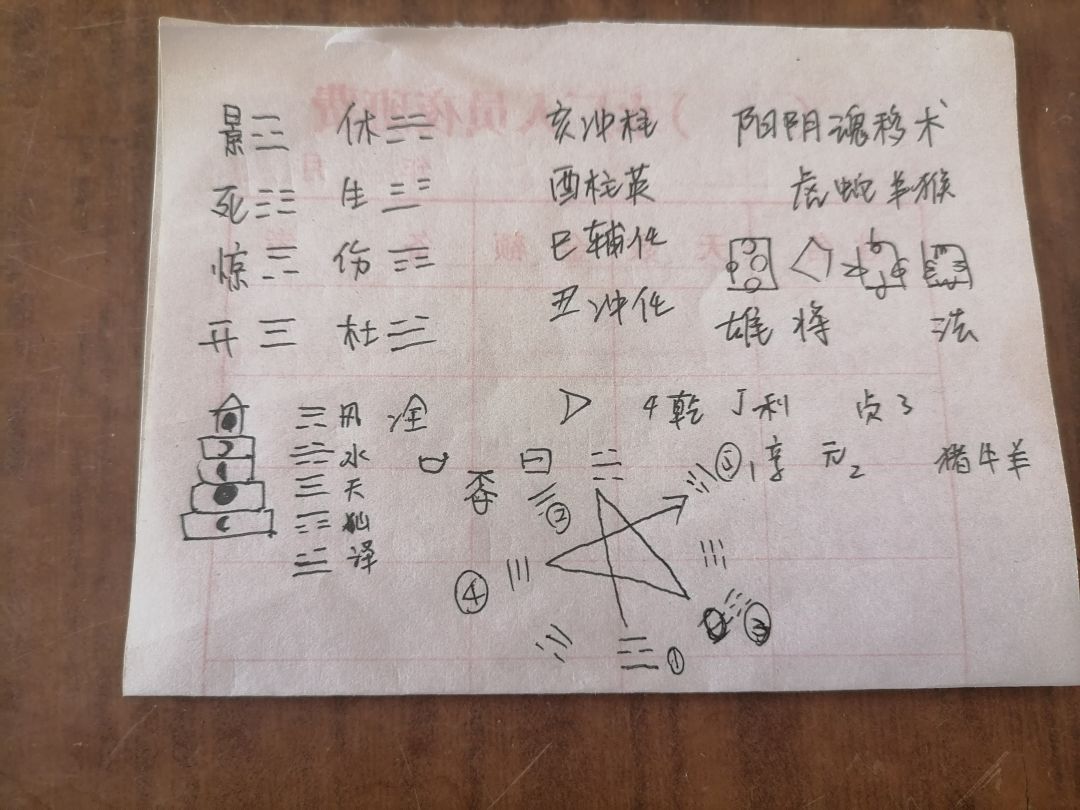 景☲ 休☵ 亥冲柱 阳阴魂移术
死☷ 生☶ 酉柱英 虎蛇羊猴
惊☱ 伤☳ 巳辅任
开☰ 杜☴ 丑冲任 雄 将 法
风 淦 4乾 J利 贞3
水 ⑤ 1享 元2 猪牛羊
天 ②
地
译 ④ ③
①